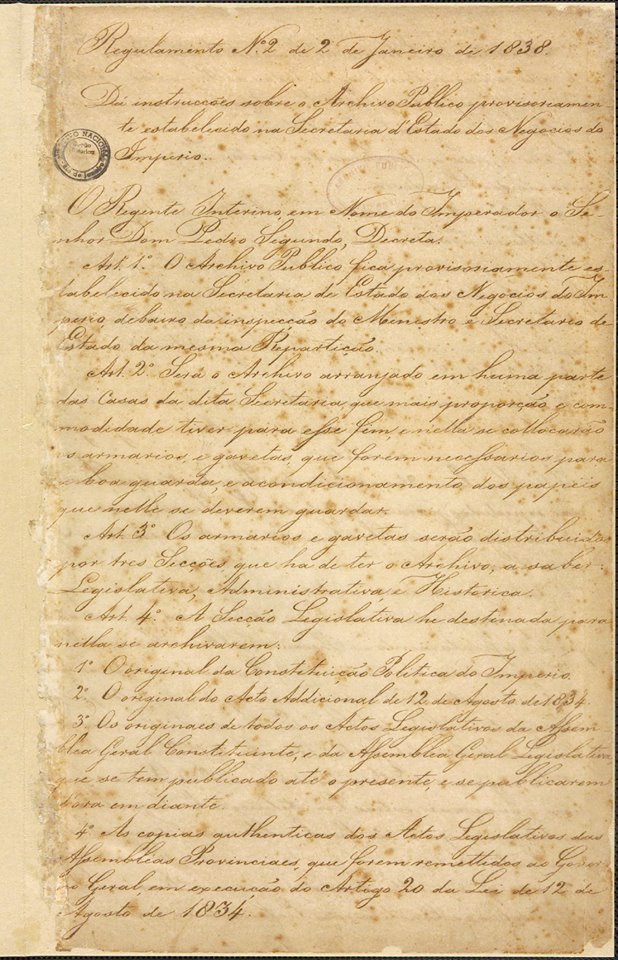 Regulamento Nº2 de 2 de Janeiro de 1838.
Dá instrucções sobre o Archivo Publico provisoriamen
te estabelecido na Secretaria d'Estado dos Negocios do
Imperio.
O Regente Interino, em Nome do Imperador o Se-
nhor Dom Pedro Segundo, Decreta:
Art. 1º. O Archivo Publico fica provisoriamente es-
tabelecido na Secretaria de Estado dos Negocios do Im
perio, debaixo da inspecção do Ministro e Secretario de
Estado da mesma Repartição.
Art. 2º Será o Archivo arranjado em huma parte
das Casas da dita Secretaria, que mais proporção, e com
modidade tiver para esse fim, e nella se collocarão
os armarios, e gavetas, que forem necessarios para
a boa guarda, e acondicionamento, dos papeis
que nelle se deverem guardar.
Art. 3º Os armarios e gavetas serão distribuidos
por tres Secções que ha de ter o Archivo, a saber:
Legislativa, Administrativa e Historica.
Art. 4º. A Secção Legislativa he destinada para
nella se archivarem:
1º O original da Constituição Politica do Imperio.
2º O original do Acto Addicional de 12 de Agosto de 1834
3º Os originaes de todos os Actos Legislativos da Assem
blea Geral Constituinte, e da Assemblea Geral Legislativa
que se tem publicado até o presente, e se publicarem
para em diante.
4º As copias authenticas dos Actos Legislativos das
Assembleas Provinciaes, que forem remettidos ao Gover
no Geral em execução do Artogo 20 da Lei de 12 de
Agosto de 1834.